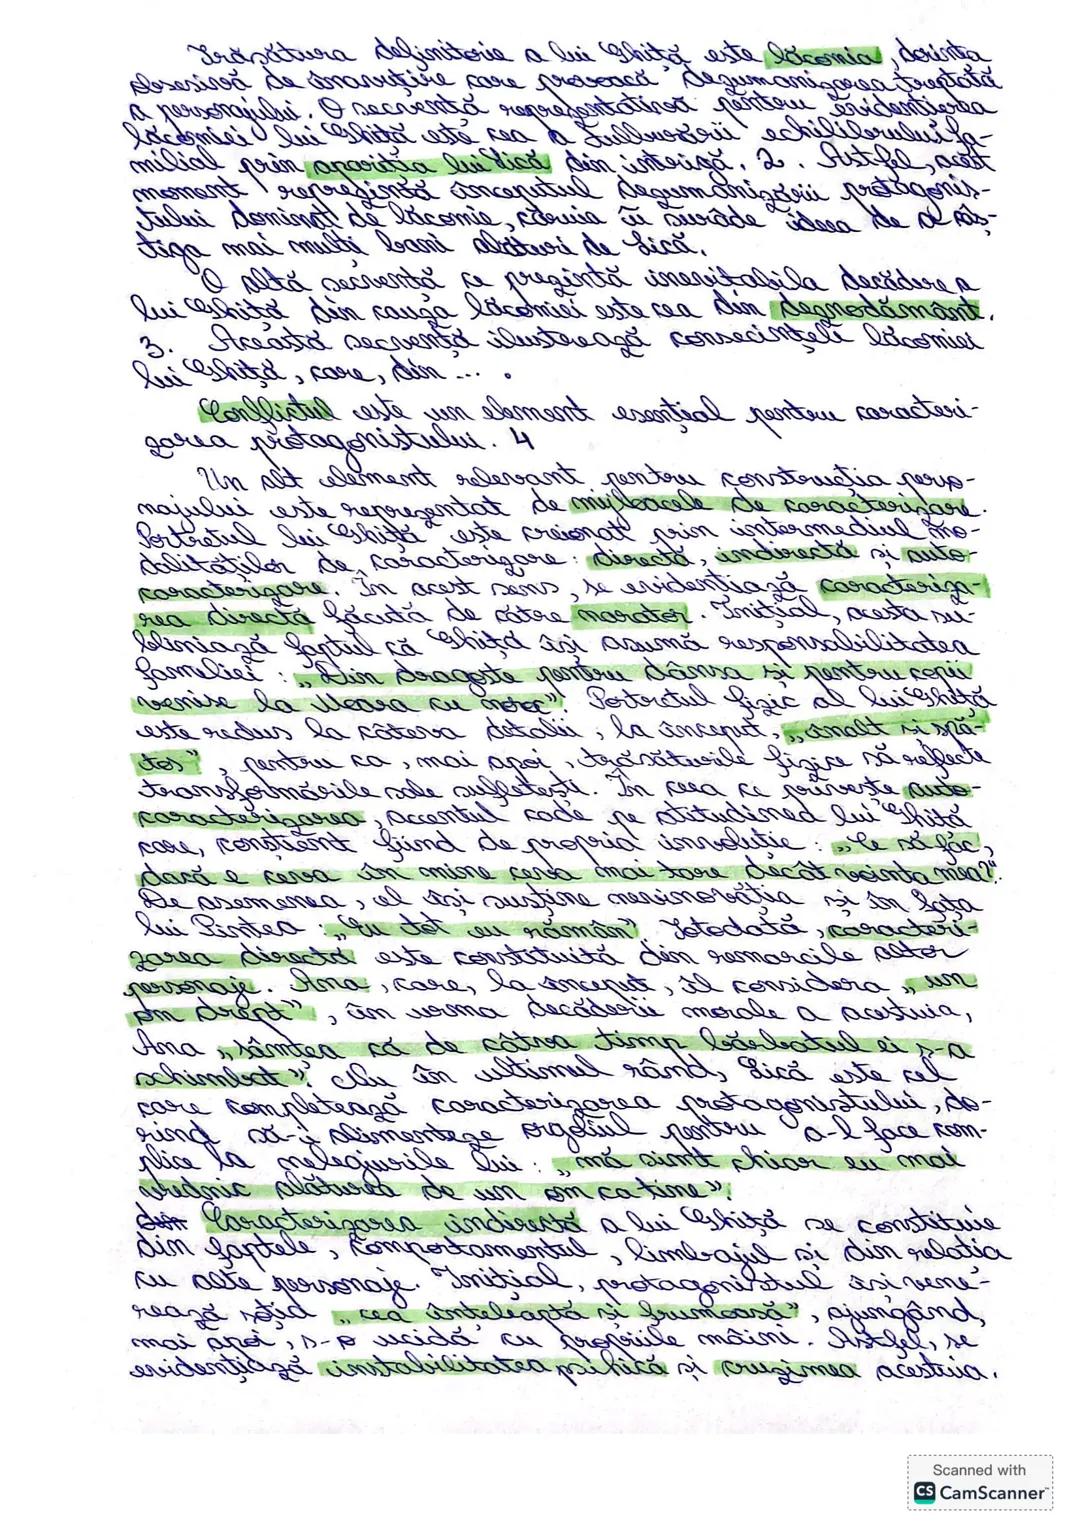 Trăsătura definitorie a lui Ghiță este lăcomia, dorința
obsesivă de înavuțire care provoacă dezumanizarea treptată
a personajului. O secvență reprezentativă pentru evidențierea
lăcomiei lui Ghiță este cea a tulburării echilibrului fa-
milial prin apariția lui Lică din intrigă. 2. Astfel, acest
moment reprezintă începutul dezumanizării protagonis-
tului dominat de lăcomie, căruia îi surâde ideea de a câș-
tiga mai mulți bani alături de Lică.
O altă secvență ce prezintă inevitabila decădere a
lui Ghiță din cauza lăcomiei este cea din deznodământ.
3. Această secvență ilustrează consecințele lăcomiei
lui Ghiță, care, din ... .
Conflictul este un element esențial pentru caracteri-
zarea protagonistului. 4
Un alt element relevant pentru construcția perso-
najului este reprezentat de mijloacele de caracterizare.
Portretul lui Ghiță este creionat prin intermediul mo-
dalităților de caracterizare: directă, indirectă și auto-
caracterizare. În acest sens, se evidențiază caracteriza-
rea directă făcută de către narator. Inițial, acesta su-
bliniază faptul că Ghiță își asumă responsabilitatea
familiei: „Din dragoste pentru dânsa și pentru copii
venise la Moara cu noroc”. Portretul fizic al lui Ghiță
este redus la câteva detalii; la început, „înalt și spă-
tos”, pentru ca, mai apoi, trăsăturile fizice să reflecte
transformările sale sufletești. În ceea ce privește auto-
caracterizarea, accentul cade pe atitudinea lui Ghiță
care, conștient fiind de propria involuție: „Ce să fac,
dacă e ceva în mine ceva mai tare decât voința mea?”.
De asemenea, el își susține nevinovăția și în fața
lui Pintea: „Eu tot eu rămân”. Totodată, caracteri-
zarea directă este constituită din remarcile altor
personaje. Ana, care, la început, îl considera „un
om drept”, în urma decăderii morale a acestuia,
Ana „simțea că de câtva timp bărbatul ei s-a
schimbat”. Nu în ultimul rând, Lică este cel
care completează caracterizarea protagonistului, do-
rind să-i alimenteze orgoliul pentru a-l face com-
plice la nelegiuirile lui: „mă simt chiar eu mai
vrednic alăturea de un om ca tine”.
Caracterizarea indirectă a lui Ghiță se constituie
din faptele, comportamentul, limbajul și din relația
cu alte personaje. Inițial, protagonistul își vene-
rează soția „cea înțeleaptă și frumoasă”, ajungând,
mai apoi, s-o ucidă cu propriile mâini. Astfel, se
evidențiază instabilitatea psihică și cruzimea acestuia.
Scanned with
CS CamScanner